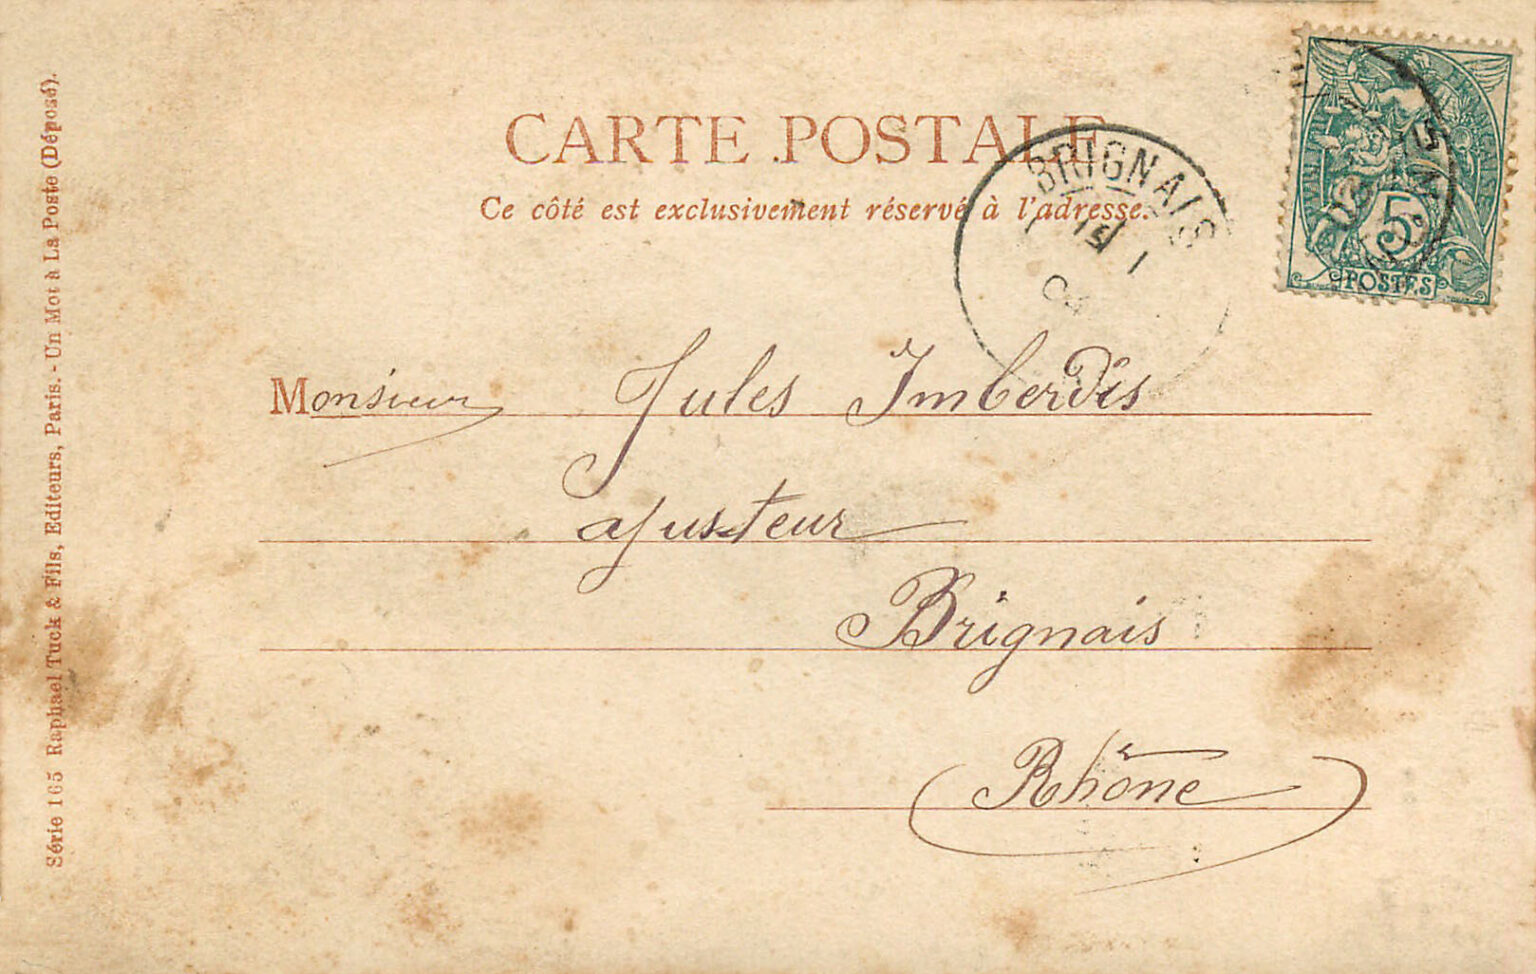 CARTE POSTALE
Ce côté est exclusivement réservé à l'adresse.
BRIGNAIS
15 1
04
5
POSTES
Monsieur Jules Imberdis
ajusteur
Brignais
(Rhône)
Série 165 Raphael Tuck & Fils, Editeurs, Paris. - Un Mot à La Poste (Déposé).